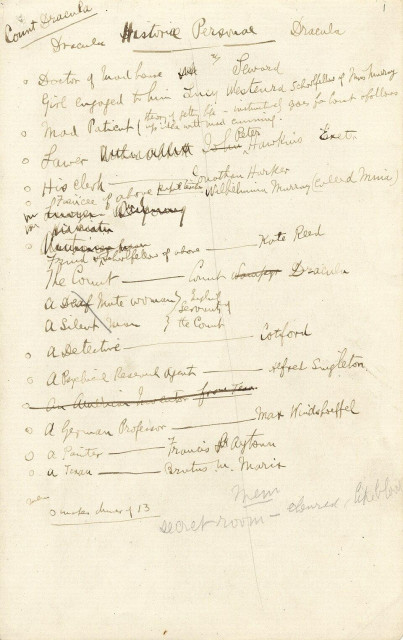 Count Dracula.
Dracula Historiæ Personae Dracula
Doctor of madhouse Seward
Girl engaged to him Lucy Westenra schoolfellow of Miss Murray
Mad Patient (theory of getting life - instinctively goes for Count & follows
up idea with mad cunning.
Lawer John Peter Hawkins Exeter
His clerk Jonathan Harker
Fiancée of above pupil teacher Wilhelmina Murray (called Mina)
Lawyer
Friend & schoolfellow of above Kate Reed
The Count Count Wampyr Dracula
A Deaf Mute woman } English
A Silent Man } Servants of
the Count
A Detective Cotford
A Psychical Research Agent Alfred Singleton
An American Inventor from Texas
A German Professor Max Windshoeffel
A Painter Francis Aytown
A Texan Brutus M. Marix
Mem
secret room - coloured like blood
mem
makes dinner of 13